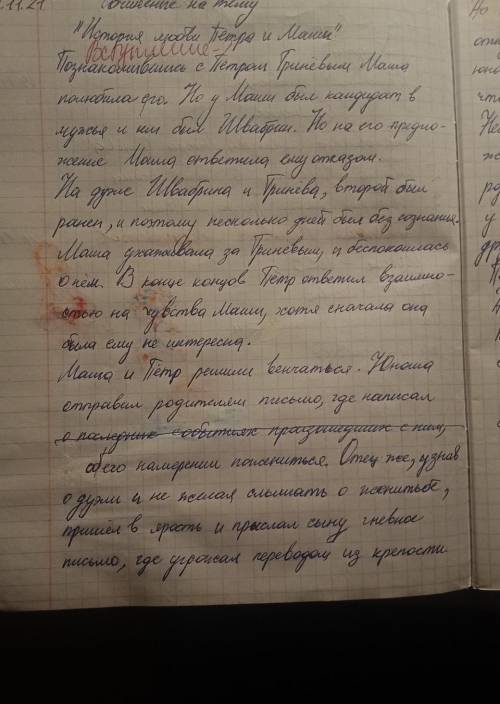 .11.21 Сочинение на тему
"История любви Петра и Маши"
Вступление
Познакомившись с Петром Гриневым Маша
полюбила его. Но у Маши был кандидат в
мужья и им был Швабрин. Но на его предло-
жение Маша ответила ему отказом.
На дуэле Швабрина и Гринёва, второй был
ранен, и поэтому несколько дней был без сознания.
Маша ухаживала за Гриневым, и беспокоилась
о нём. В конце концов Петр ответил взаимно-
стью на чувства Маши, хотя сначала она
была ему не интересна.
Маша и Пётр решили венчаться. Юноша
отправил родителям письмо, где написал
о последних событиях произошедших с ним,
об его намерении пожениться. Отец же, узнав
о дуэли и не желая слышать о женитьбе,
пришёл в ярость и прислал сыну гневное
письмо, где угрожал переводом из крепости.